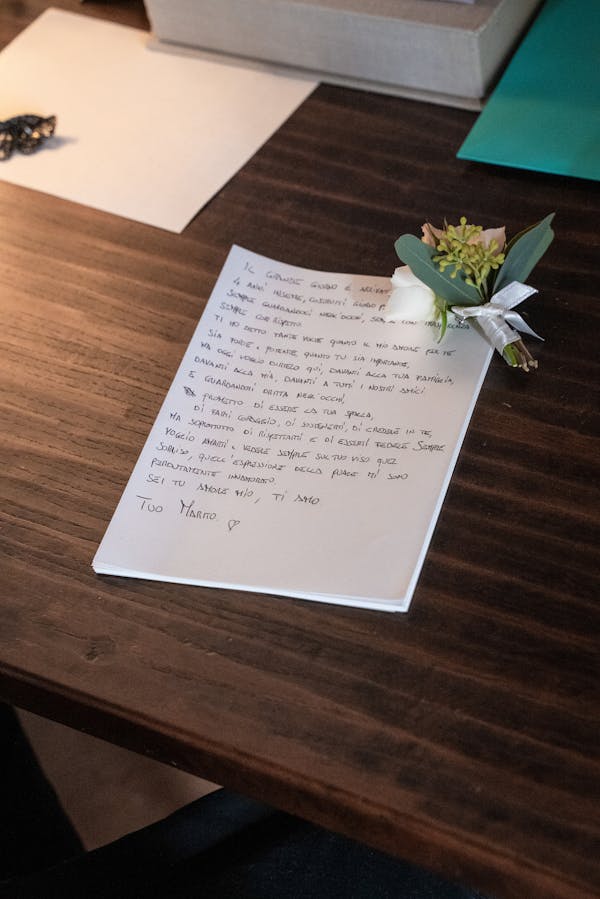 IL GRANDE GIORNO È ARRIVAT
4 ANNI INSIEME, COSTRUITI GIORNO P
SEMPRE GUARDANDOCI NEGL'OCCHI, SEMPRE CON TRASPARENZA
SEMPRE CON RISPETTO.
TI HO DETTO TANTE VOLTE QUANTO IL MIO AMORE PER TE
SIA FORTE E POTENTE, QUANTO TU SIA IMPORTANTE,
MA OGGI VOGLIO DIRTELO QUI, DAVANTI ALLA TUA FAMIGLIA,
DAVANTI ALLA MIA, DAVANTI A TUTTI I NOSTRI AMICI.
E GUARDANDOTI DRITTA NEGL'OCCHI,
PROMETTO DI ESSERE LA TUA SPALLA,
DI FARTI CORAGGIO, DI SOSTENERTI, DI CREDERE IN TE,
MA SOPRATTUTTO DI RISPETTARTI E DI ESSERTI FEDELE SEMPRE
VOGLIO AMARTI E VEDERE SEMPRE SUL TUO VISO QUEL
SORRISO, QUELL'ESPRESSIONE DELLA QUALE MI SONO
PERDUTAMENTE INNAMORATO.
SEI TU AMORE MIO, TI AMO
TUO MARITO. ♡